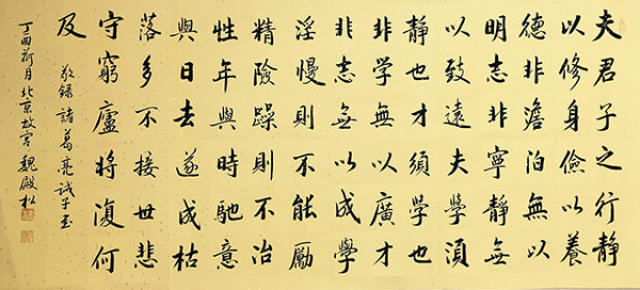 夫君子之行静
以修身儉以養
德非澹泊無以
明志非寧靜無
以致遠夫學須
靜也才須學也
非學無以廣才
非志無以成學
淫慢則不能勵
精險躁則不冶
性年與時馳意
與日去遂成枯
落多不接世悲
守窮廬將復何
及
敬錄諸葛亮誡子書
丁酉荷月北京故宮魏殿松